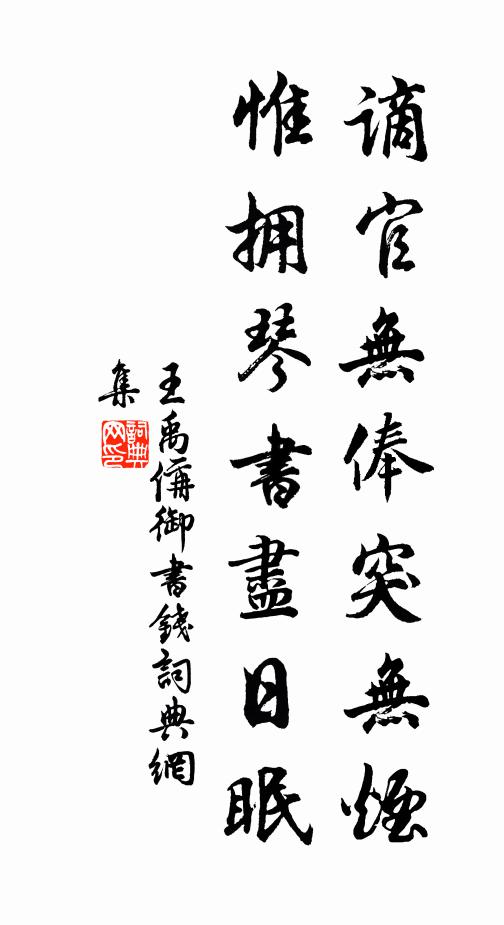 謫官無俸突無煙
惟擁琴書盡日眠
王禹偁御書錢詞典網
集
詞典网印